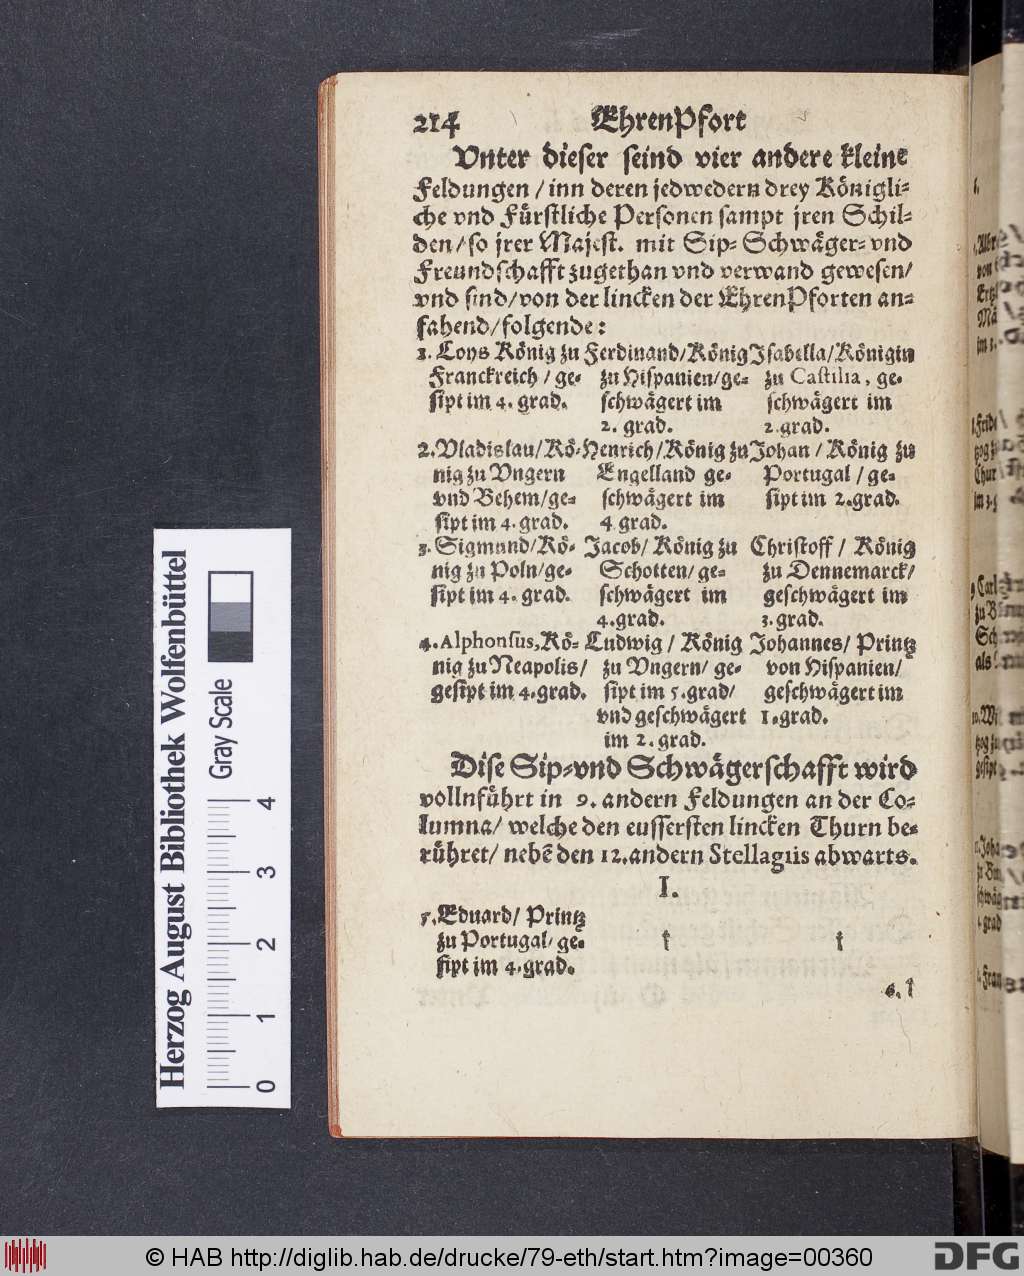 214 EhrenPfort
Vnter dieser seind vier andere kleine
Feldungen / inn deren jedwedern drey Königli-
che vnd Fürstliche Personen sampt jren Schil-
den / so jrer Majest. mit Sip- Schwäger- vnd
Freundschafft zugethan vnd verwand gewesen /
vnd sind / von der lincken der EhrenPforten an-
fahend / folgende:
1. Loys König zu
Franckreich / ge-
sipt im 4. grad.
Ferdinand / König
zu Hispanien / ge-
schwägert im
2. grad.
Isabella / Königin
zu Castilia, ge-
schwägert im
2. grad.
2. Vladislau / Kö-
nig zu Vngern
vnd Behem / ge-
sipt im 4. grad.
Henrich / König zu
Engelland ge-
schwägert im
4 grad.
Johan / König zu
Portugal / ge-
sipt im 2. grad.
3. Sigmund / Kö-
nig zu Poln / ge-
sipt im 4. grad.
Jacob / König zu
Schotten / ge-
schwägert im
4. grad.
Christoff / König
zu Dennemarck /
geschwägert im
3. grad.
4. Alphonsus, Kö-
nig zu Neapolis /
gesipt im 4. grad.
Ludwig / König
zu Vngern / ge-
sipt im 5. grad /
vnd geschwägert
im 2. grad.
Johannes / Printz
von Hispanien /
geschwägert im
1. grad.
Dise Sip- vnd Schwägerschafft wird
vollnführt in 9. andern Feldungen an der Co-
lumna / welche den eussersten lincken Thurn be-
rühret / nebē den 12. andern Stellagiis abwarts.
I.
5. Eduard / Printz
zu Portugal / ge-
sipt im 4. grad.
†
†
6. †
Herzog August Bibliothek Wolfenbüttel
Gray Scale
0 1 2 3 4
© HAB http://diglib.hab.de/drucke/79-eth/start.htm?image=00360
DFG